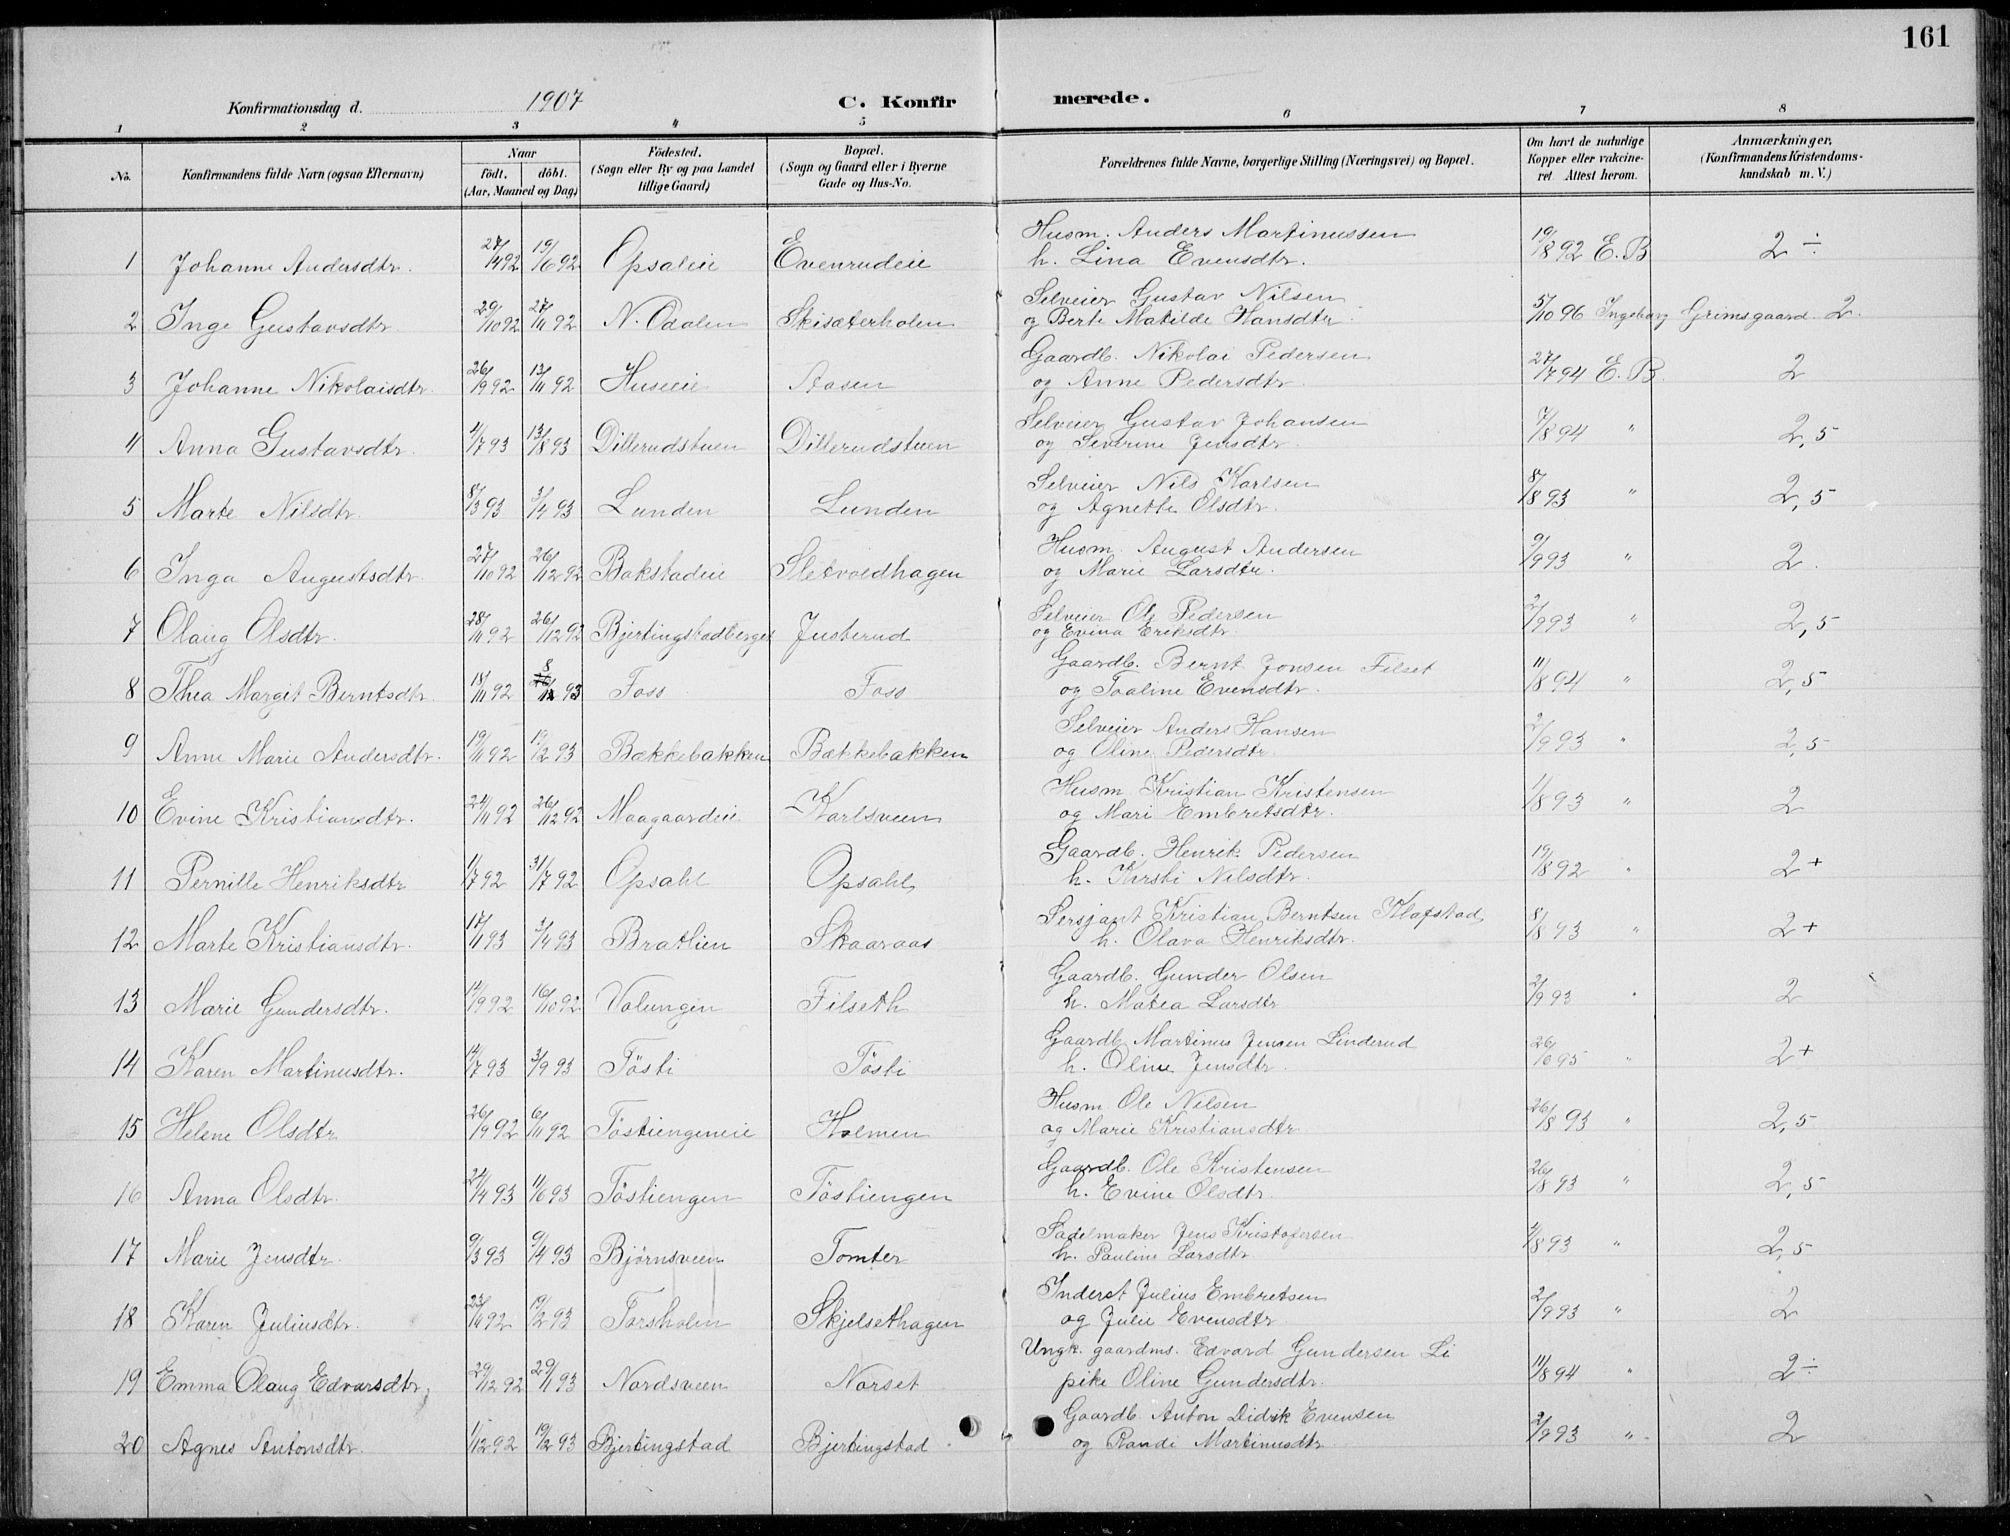 161
Konfirmationsdag d. 1907 C. Konfirmerede.
1 2 3 4 5 6 7 8
No. Konfirmandens fulde Navn (ogsaa Efternavn) Naar født. døbt. (Aar, Maaned og Dag) Fødested. (Sogn eller By og paa Landet tillige Gaard) Bopæl. (Sogn og Gaard eller i Byerne Gade og Hus-No. Forældrenes fulde Navne, borgerlige Stilling (Næringsvei) og Bopæl. Om havt de naturlige Kopper eller vakcineret. Attest herom. Anmærkninger. (Konfirmandens Kristendomskundskab m. V.)
1 Johanne Andersdtr. 27/4 92 19/6 92 Opsaleie Evenrudeie Husm. Anders Martinussen
h. Lina Evensdtr. 19/8 92 E. B 2 ÷
2 Inge Gustavsdtr. 29/10 92 27/11 92 N. Odalen Skisæterholen Selveier Gustav Nilsen
og Berte Matilde Hansdtr. 5/10 96 Ingeborg Grimsgaard 2.
3 Johanne Nikolaisdtr. 26/9 92 13/11 92 Huseie Aasen Gaardb. Nikolai Pedersen
og Anne Pedersdtr. 27/7 94 E. B. 2
4 Anna Gustavsdtr. 4/7 93 13/8 93 Dillerudstuen Dillerudstuen Selveier Gustav Johansen
og Severine Jensdtr. 7/8 94 " 2,5
5 Marte Nilsdtr. 8/3 93 3/4 93 Lunden Lunden Selveier Nils Karlsen
og Agnette Olsdtr. 8/8 93 " 2,5
6 Inga Augustsdtr. 27/10 92 26/12 92 Bakstadeie Sletvoldhagen Husm. August Andersen
og Marie Larsdtr. 9/9 93 " 2.
7 Olaug Olsdtr. 28/11 92 26/12 92 Bjertingstadberget Justerud Selveier Ole Pedersen
og Evina Eriksdtr. 2/9 93 " 2,5
8 Thea Margit Berntsdtr. 18/11 92 8/1 93 Foss Foss Gaardb. Bernt Jonsen Filset
og Taaline Evensdtr. 11/8 94 " 2,5
9 Anne Marie Andersdtr. 19/11 92 19/2 93 Bækkebakken Bækkebakken Selveier Anders Hansen
og Oline Pedersdtr. 2/9 93 " 2,5
10 Evine Kristiansdtr. 24/11 92 26/12 92 Maagaardeie Karlsveen Husm. Kristian Kristensen
og Mari Embretsdtr. 1/8 93 " 2
11 Pernille Henriksdtr. 1/7 92 31/7 92 Opsahl Opsahl Gaardb. Henrik Pedersen
h. Kirsti Nilsdtr. 19/8 92 " 2+
12 Marte Kristiansdtr. 17/1 93 3/4 93 Bratlien Skaaraas Sersjant Kristian Berntsen Klafstad
h. Olava Henriksdtr. 8/8 93 " 2+
13 Marie Gundersdtr. 14/9 92 16/10 92 Volungen Filseth Gaardb. Gunder Olsen
h. Matea Larsdtr 2/9 93 " 2
14 Karen Martinusdtr. 14/7 93 3/9 93 Tøsti Tøsti Gaardb. Martinus Jensen Linderud
h. Oline Jensdtr. 26/6 95 " 2+
15 Helene Olsdtr 26/9 92 6/11 92 Tøstiengeneie Holmen Husm. Ole Nilsen
og Marie Kristiansdtr. 26/8 93 " 2,5
16 Anna Olsdtr. 24/4 93 11/6 93 Tøstiengen Tøstiengen Gaardb. Ole Kristensen
h. Evine Olsdtr. 26/8 93 " 2,5
17 Marie Jensdtr. 9/3 93 9/4 93 Bjørnsveen Tomter Sadelmaker Jens Kristofersen
h. Pauline Larsdtr. 4/8 93 " 2,5
18 Karen Juliusdtr. 23/11 92 19/2 93 Torsholen Skjelsethagen Inderst Julius Embretsen
og Julie Evensdtr 2/9 93 " 2
19 Emma Olaug Edvarsdtr. 29/12 92 29/1 93 Nordsveen Norset Ungk. gaardms. Edvard Gundersen Li
pike Oline Gundersdtr. 11/8 94 " 2÷
20 Agnes Antonsdtr. 1/12 92 19/2 93 Bjertingstad Bjertingstad Gaardb. Anton Didrik Evensen
og Randi Martinusdtr. 2/9 93 " 2